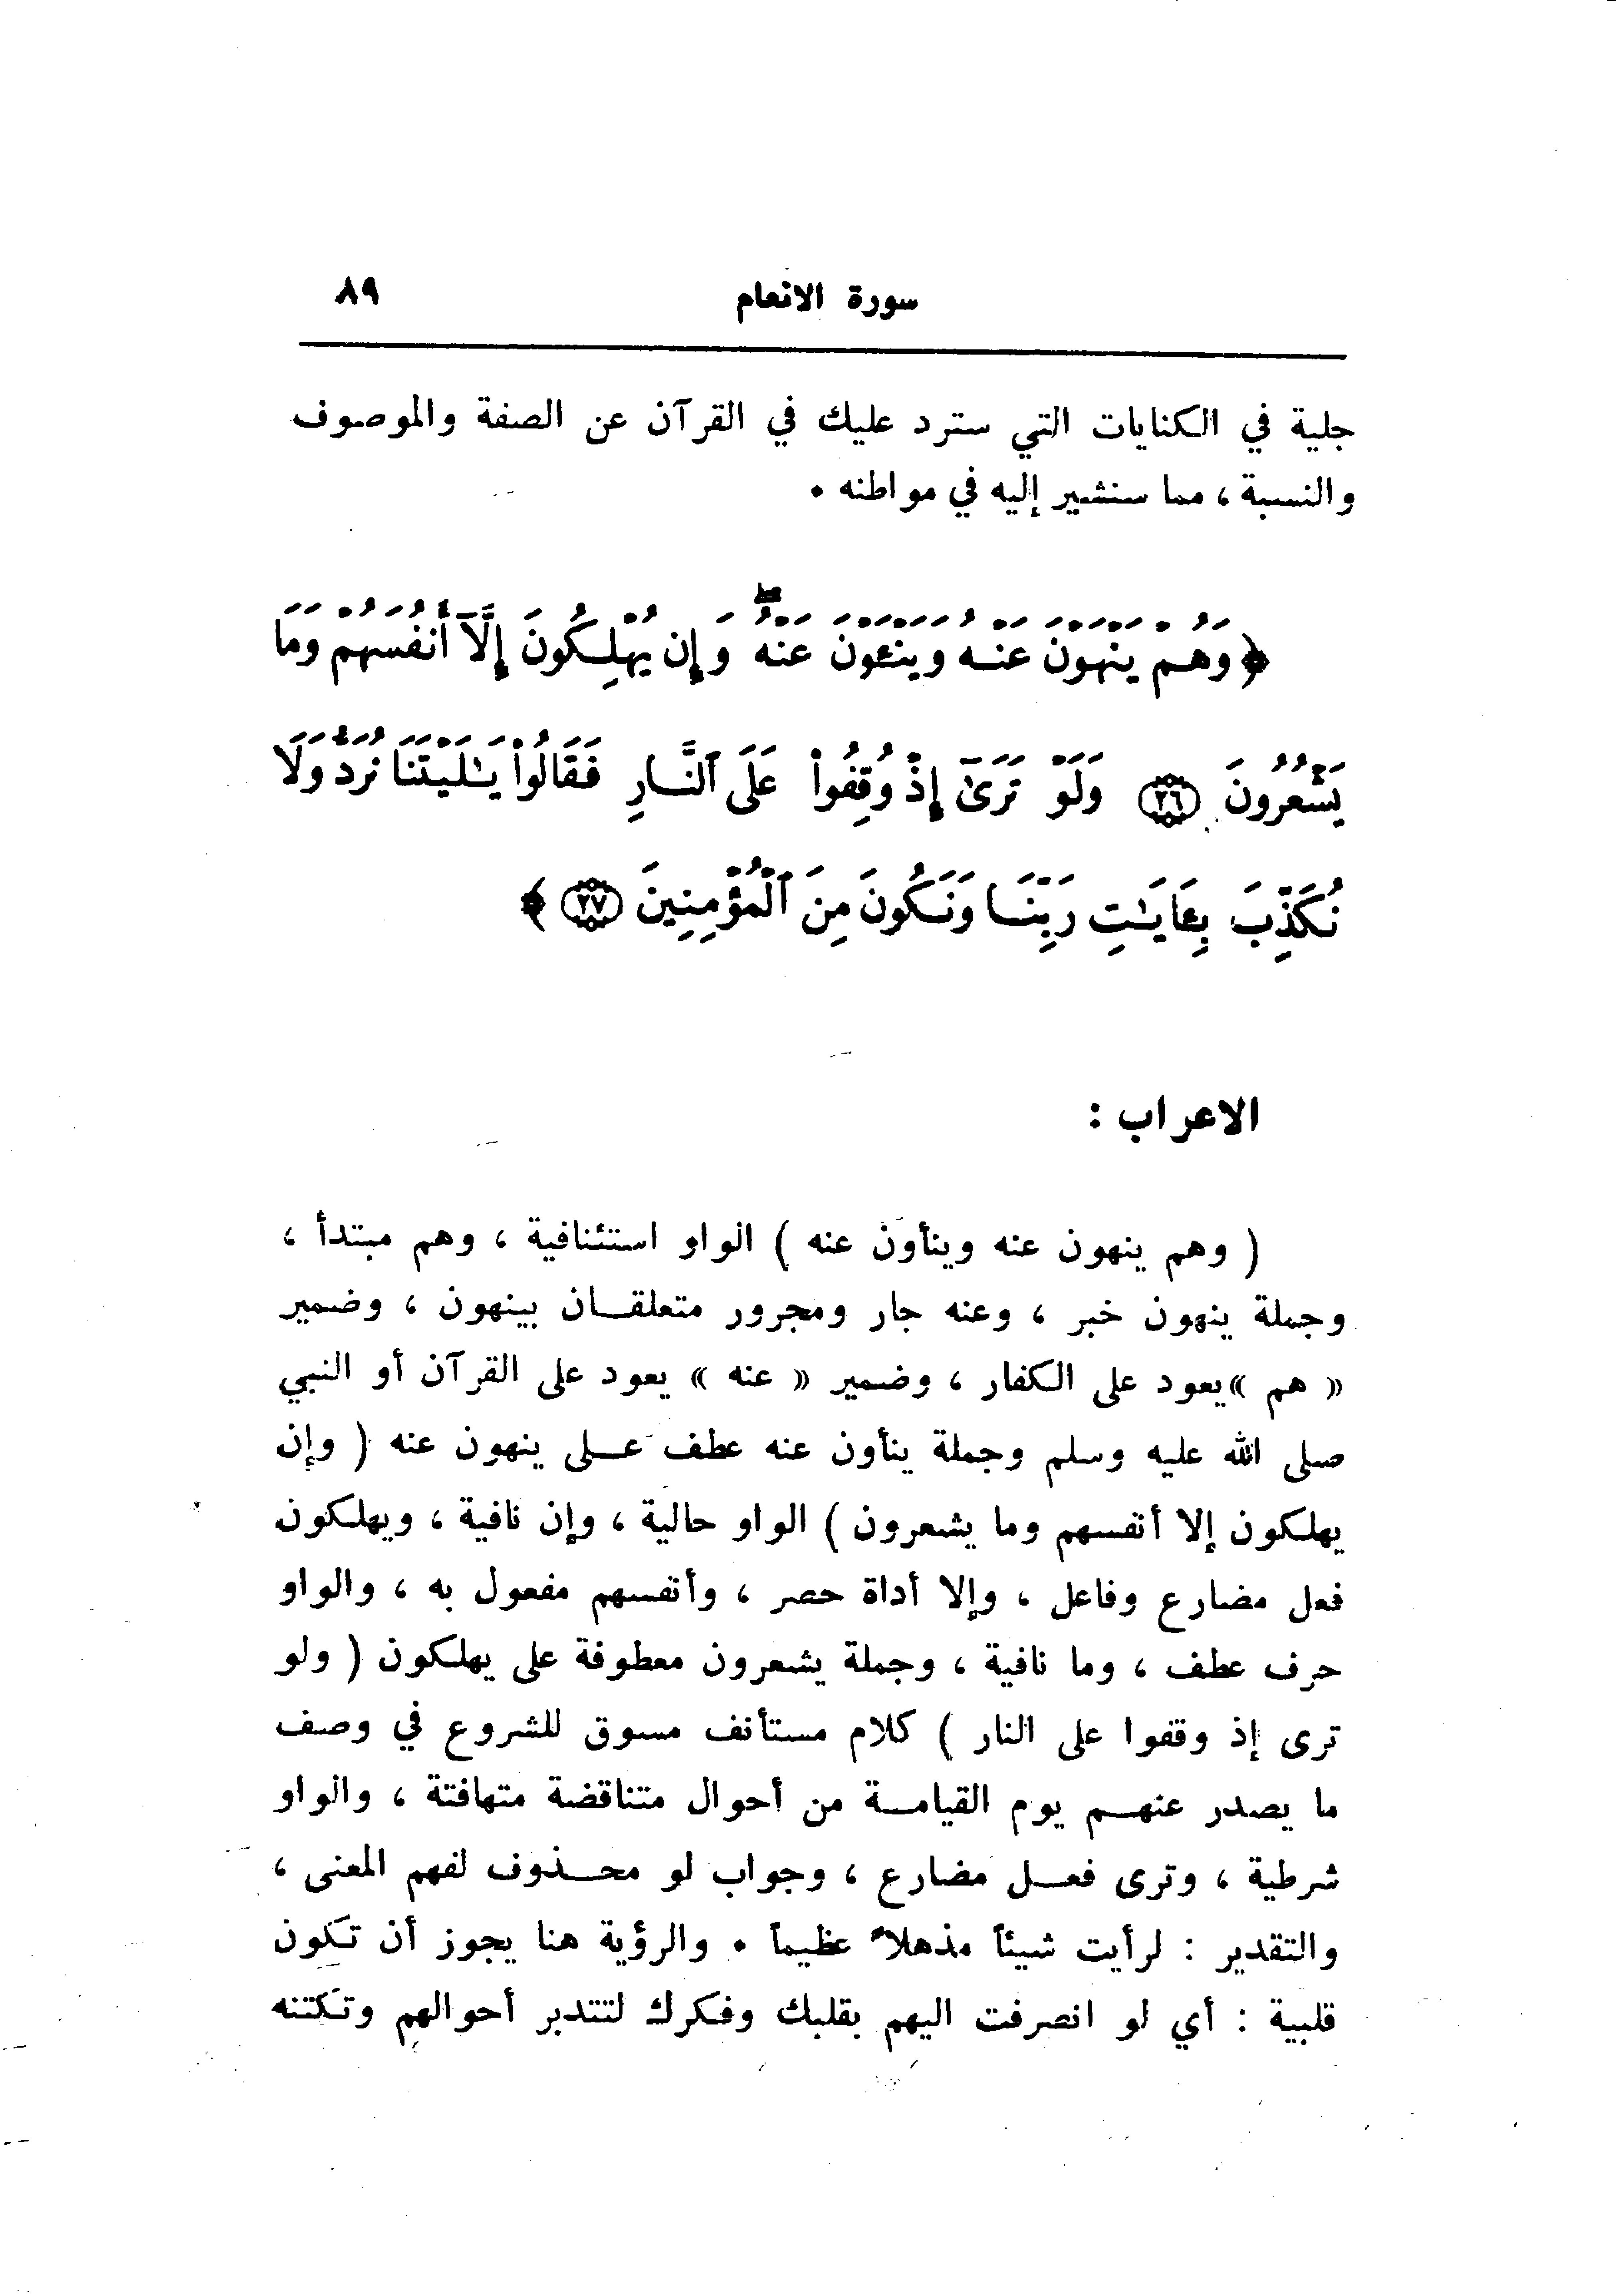 سورة الانعام ٨٩
جلية في الكنايات التي سترد عليك في القرآن عن الصفة والموصوف
والنسبة ، مما سنشير إليه في مواطنه .
﴿ وَهُمْ يَنْهَوْنَ عَنْهُ وَيَنْـَٔوْنَ عَنْهُ ۖ وَإِن يُهْلِكُونَ إِلَّآ أَنفُسَهُمْ وَمَا
يَشْعُرُونَ ﴿٢٦﴾ وَلَوْ تَرَىٰٓ إِذْ وُقِفُوا۟ عَلَى ٱلنَّارِ فَقَالُوا۟ يَـٰلَيْتَنَا نُرَدُّ وَلَا
نُكَذِّبَ بِـَٔايَـٰتِ رَبِّنَا وَنَكُونَ مِنَ ٱلْمُؤْمِنِينَ ﴿٢٧﴾ ﴾
الاعراب :
( وهم ينهون عنه وينأون عنه ) الواو استئنافية ، وهم مبتدأ ،
وجملة ينهون خبر ، وعنه جار ومجرور متعلقان بينهون ، وضمير
« هم » يعود على الكفار ، وضمير « عنه » يعود على القرآن أو النبي
صلى الله عليه وسلم وجملة ينأون عنه عطف على ينهون عنه ( وإن
يهلكون إلا أنفسهم وما يشعرون ) الواو حالية ، وإن نافية ، ويهلكون
فعل مضارع وفاعل ، وإلا أداة حصر ، وأنفسهم مفعول به ، والواو
حرف عطف ، وما نافية ، وجملة يشعرون معطوفة على يهلكون ( ولو
ترى إذ وقفوا على النار ) كلام مستأنف مسوق للشروع في وصف
ما يصدر عنهم يوم القيامة من أحوال متناقضة متهافتة ، والواو
شرطية ، وترى فعل مضارع ، وجواب لو محذوف لفهم المعنى ،
والتقدير : لرأيت شيئاً مذهلاً عظيماً . والرؤية هنا يجوز أن تكون
قلبية : أي لو انصرفت اليهم بقلبك وفكرك لتتدبر أحوالهم وتكتنه